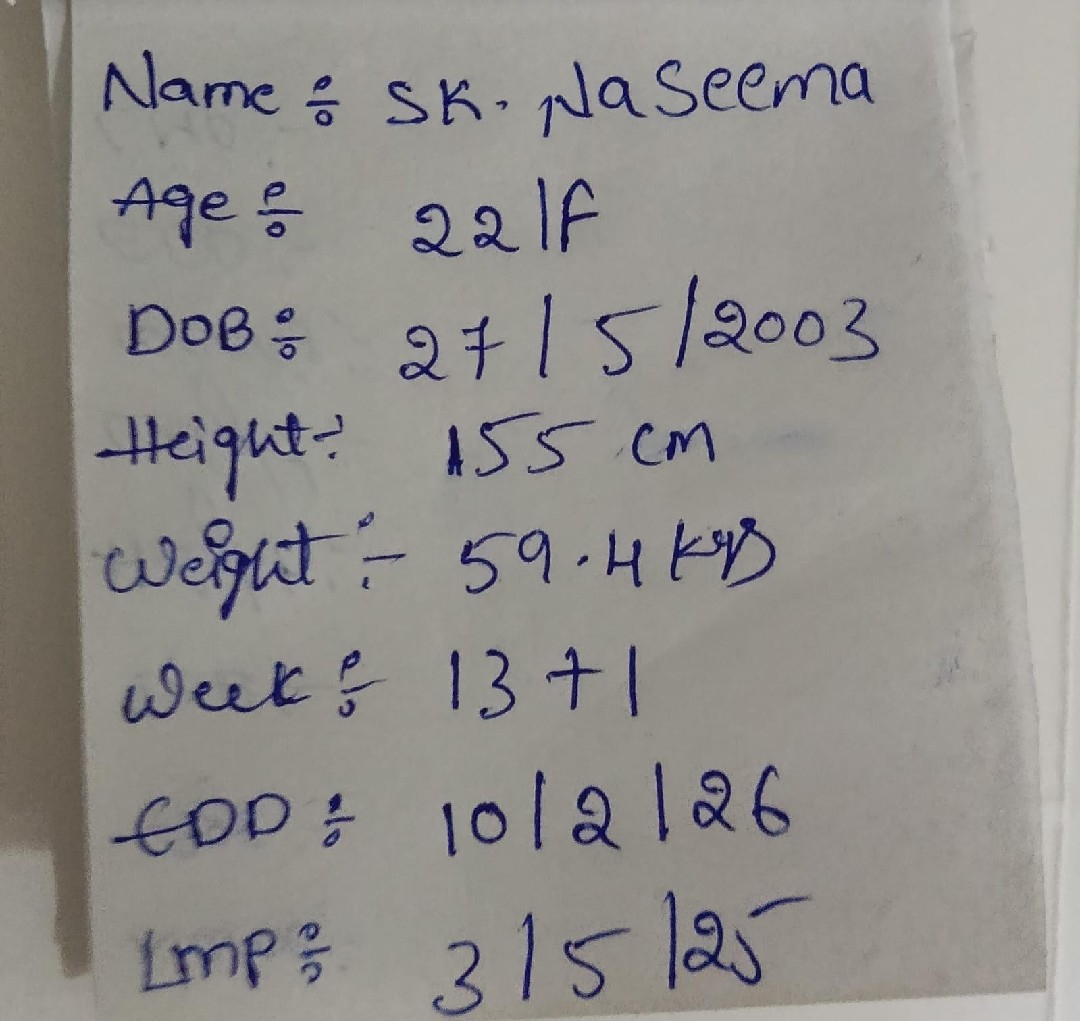 Name ÷ SK. Naseema
Age ÷ 22/F
DOB ÷ 27/5/2003
Height ÷ 155 cm
Weight ÷ 59.4 kgs
Week ÷ 13+1
EDD ÷ 10/2/26
LMP ÷ 3/5/25